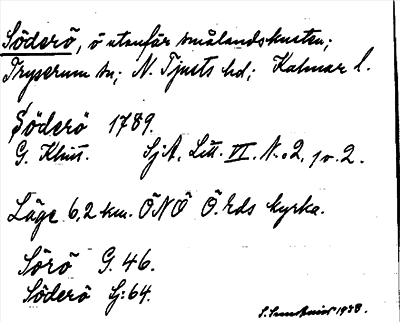 Söderö, ö utanför smålandskusten;
Tryserum sn; N. Tjusts hd; Kalmar l.
Söderö 1789.
G. Klint. SjA. Litt. VI. N:o 2, 2.
Läge 6,2 km. ÖNÖ Ö. Eds kyrka.
Sörö G. 46.
Söderö Sj: 64.
1938.